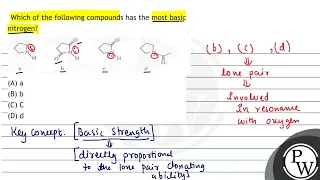 Which of the following compounds has the most basic
nitrogen?
a b c d
(A) a
(B) b
(C) C
(D) d
(b) , (c) , (d)
lone pair
involved
in resonance
with oxygen
Key Concept: [Basic strength]
[directly proportional
to the lone pair donating
ability]
PW